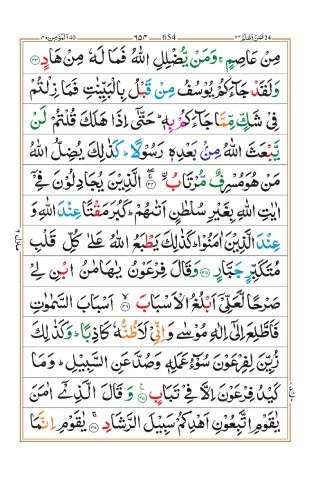 فمن اظلم ٢٤ ٦٥٤ 654 المؤمن ٤٠
مِنْ عَاصِمٍ ۚ وَمَنْ يُّضْلِلِ اللّٰهُ فَمَا لَهٗ مِنْ هَادٍ ﴿۳۳﴾
وَلَقَدْ جَآءَكُمْ يُوْسُفُ مِنْ قَبْلُ بِالْبَيِّنٰتِ فَمَا زِلْتُمْ
فِيْ شَكٍّ مِّمَّا جَآءَكُمْ بِهٖ ؕ حَتّٰۤي اِذَا هَلَكَ قُلْتُمْ لَنْ
يَّبْعَثَ اللّٰهُ مِنْۢ بَعْدِهٖ رَسُوْلًا ؕ كَذٰلِكَ يُضِلُّ اللّٰهُ
مَنْ هُوَ مُسْرِفٌ مُّرْتَابُ ﴿۳۴﴾ الَّذِيْنَ يُجَادِلُوْنَ فِيْۤ
اٰيٰتِ اللّٰهِ بِغَيْرِ سُلْطٰنٍ اَتٰىهُمْ ؕ كَبُرَ مَقْتًا عِنْدَ اللّٰهِ وَ
عِنْدَ الَّذِيْنَ اٰمَنُوْا ؕ كَذٰلِكَ يَطْبَعُ اللّٰهُ عَلٰي كُلِّ قَلْبِ
مُتَكَبِّرٍ جَبَّارٍ ﴿۳۵﴾ وَقَالَ فِرْعَوْنُ يٰهَامٰنُ ابْنِ لِيْ
صَرْحًا لَّعَلِّيْۤ اَبْلُغُ الْاَسْبَابَ ﴿۳۶﴾ اَسْبَابَ السَّمٰوٰتِ
فَاَطَّلِعَ اِلٰۤي اِلٰهِ مُوْسٰي وَاِنِّيْ لَاَظُنُّهٗ كَاذِبًا ؕ وَكَذٰلِكَ
زُيِّنَ لِفِرْعَوْنَ سُوْٓءُ عَمَلِهٖ وَصُدَّ عَنِ السَّبِيْلِ ؕ وَمَا
كَيْدُ فِرْعَوْنَ اِلَّا فِيْ تَبَابٍ ﴿۳۷﴾ وَقَالَ الَّذِيْۤ اٰمَنَ
يٰقَوْمِ اتَّبِعُوْنِ اَهْدِكُمْ سَبِيْلَ الرَّشَادِ ﴿۳۸﴾ يٰقَوْمِ اِنَّمَا